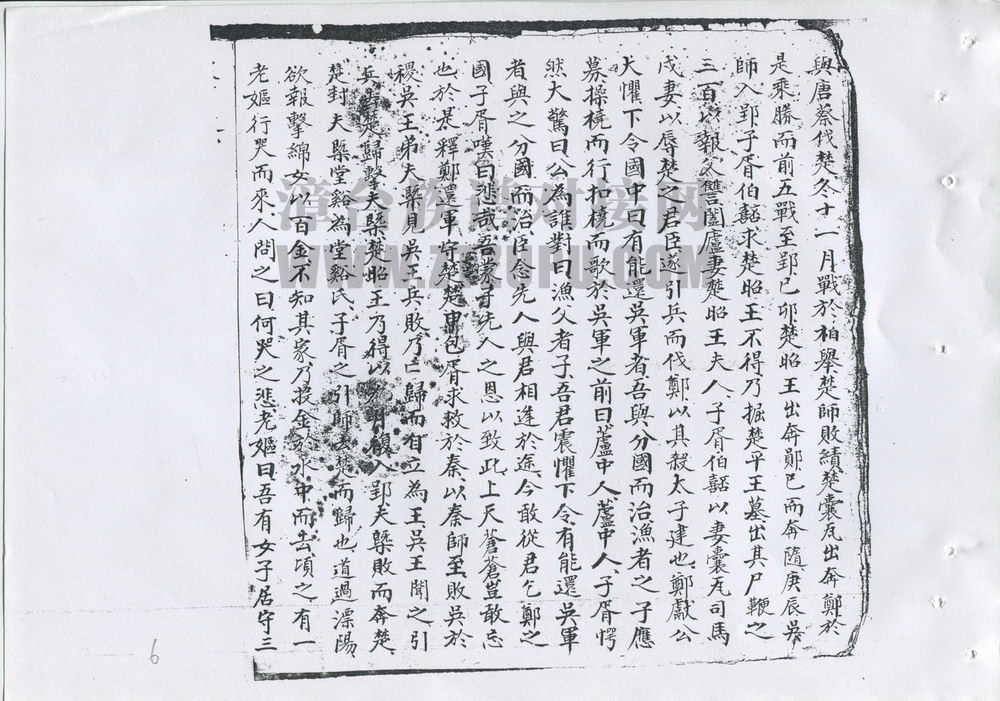 與唐蔡伐楚冬十一月戰於柏舉楚師敗績楚囊瓦出奔鄭於
是乘勝而前五戰至郢已卯楚昭王出奔鄖已而奔隨庚辰吳
師入郢子胥伯嚭求楚昭王不得乃掘楚平王墓出其尸鞭之
三百以報父讐闔廬妻楚昭王夫人子胥伯嚭以妻囊瓦司馬
戍妻以辱楚之君臣遂引兵而伐鄭以其殺太子建也鄭獻公
大懼下令國中曰有能還吳軍者吾與分國而治漁者之子應
募操橈而行扣橈而歌於吳軍之前曰蘆中人蘆中人子胥愕
然大驚曰公為誰對曰漁父者子吾君震懼下令有能還吳軍
者與之分國而治臣念先人與君相逢於途今敢從君乞鄭之
國子胥嘆曰悲哉吾蒙子先人之恩以致此上天蒼蒼豈敢忘
也於是釋鄭還軍守楚楚申包胥求救於秦以秦師至敗吳於
稷吳王弟夫槩見吳王兵敗乃亡歸而自立為王吳王聞之引
兵去楚歸擊夫槩楚昭王乃得以復入郢夫槩敗而奔楚
楚封夫槩堂谿為堂谿氏子胥之引師去楚而歸也道過溧陽
欲報擊綿女以百金不知其家乃投金於水中而去頃之有一
老嫗行哭而來人問之曰何哭之悲老嫗曰吾有女子居守三
漳台族谱对接网
6